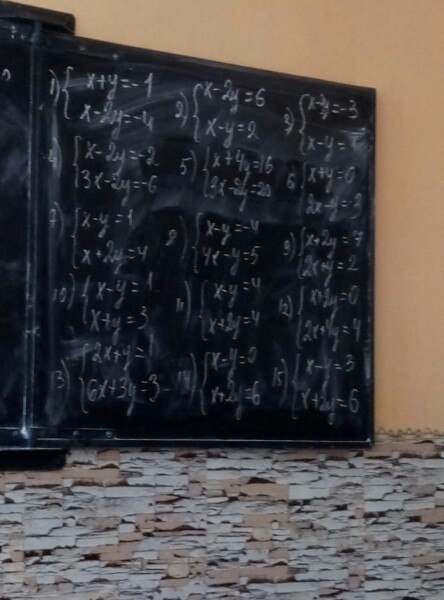 1) { x+y=-1
x-2y=-4
2) { x-2y=6
x-y=2
3) {
x-y=
4) { x-2y=-2
3x-2y=-6
5) { x+4y=16
2x-2y=20
6 { x+y=0
2x-y=-3
7) { x-y=1
x+2y=4
8) { x-y=-4
4x-y=5
9) { x+2y=7
2x+y=2
10) { x-y=1
x+y=3
11) { x-y=4
x+2y=4
12) { x+2y=0
2x+y=4
13) { 2x+y=1
6x+3y=3
14) { x-y=0
x+2y=6
15) { x-y=3
x+2y=6